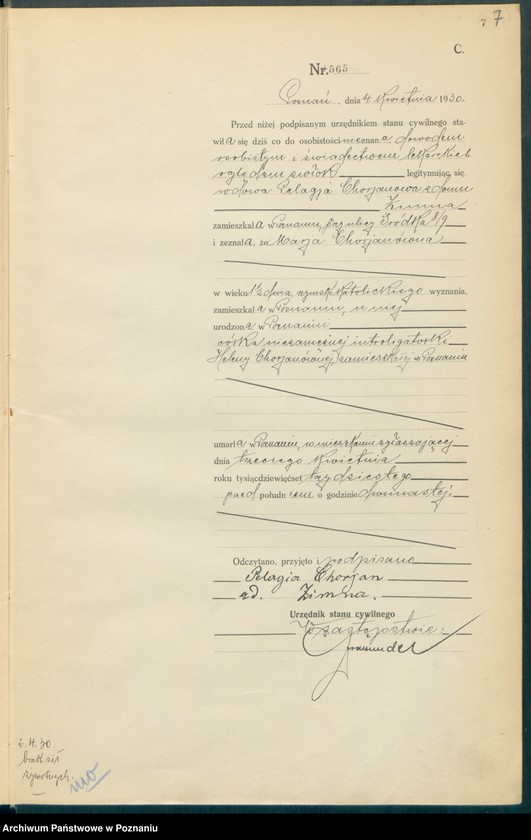 7 7
C.
Nr. 565
Poznań, dnia 4. Kwietnia 1930.
Przed niżej podpisanym urzędnikiem stanu cywilnego sta-
wiła się dziś co do osobistości nieznana, dowodem
osobistym i świadectwem lekarskich
oględzin zwłok legitymując się.
wdowa Pelagja Chorjanowa z domu
Zimna
zamieszkała w Poznaniu, przy ulicy Śródka 8/9
i zeznała, że Marja Chorjanówna
w wieku 1½ dnia, rzymsko katolickiego wyznania.
zamieszkała w Poznaniu, u niej
urodzona w Poznaniu
córka niezamężnej introligatorki
Heleny Chorjanównej, zamieszkałej w Poznaniu
umarła w Poznaniu, w mieszkaniu zgłaszającej
dnia trzeciego Kwietnia
roku tysiącdziewięćset trzydziestego
przed południem o godzinie dwunastej.
Odczytano, przyjęto i podpisano
Pelagia Chorjan
zd. Zimna.
Urzędnik stanu cywilnego
W zastępstwie:
4. 30
brak
Archiwum Państwowe w Poznaniu